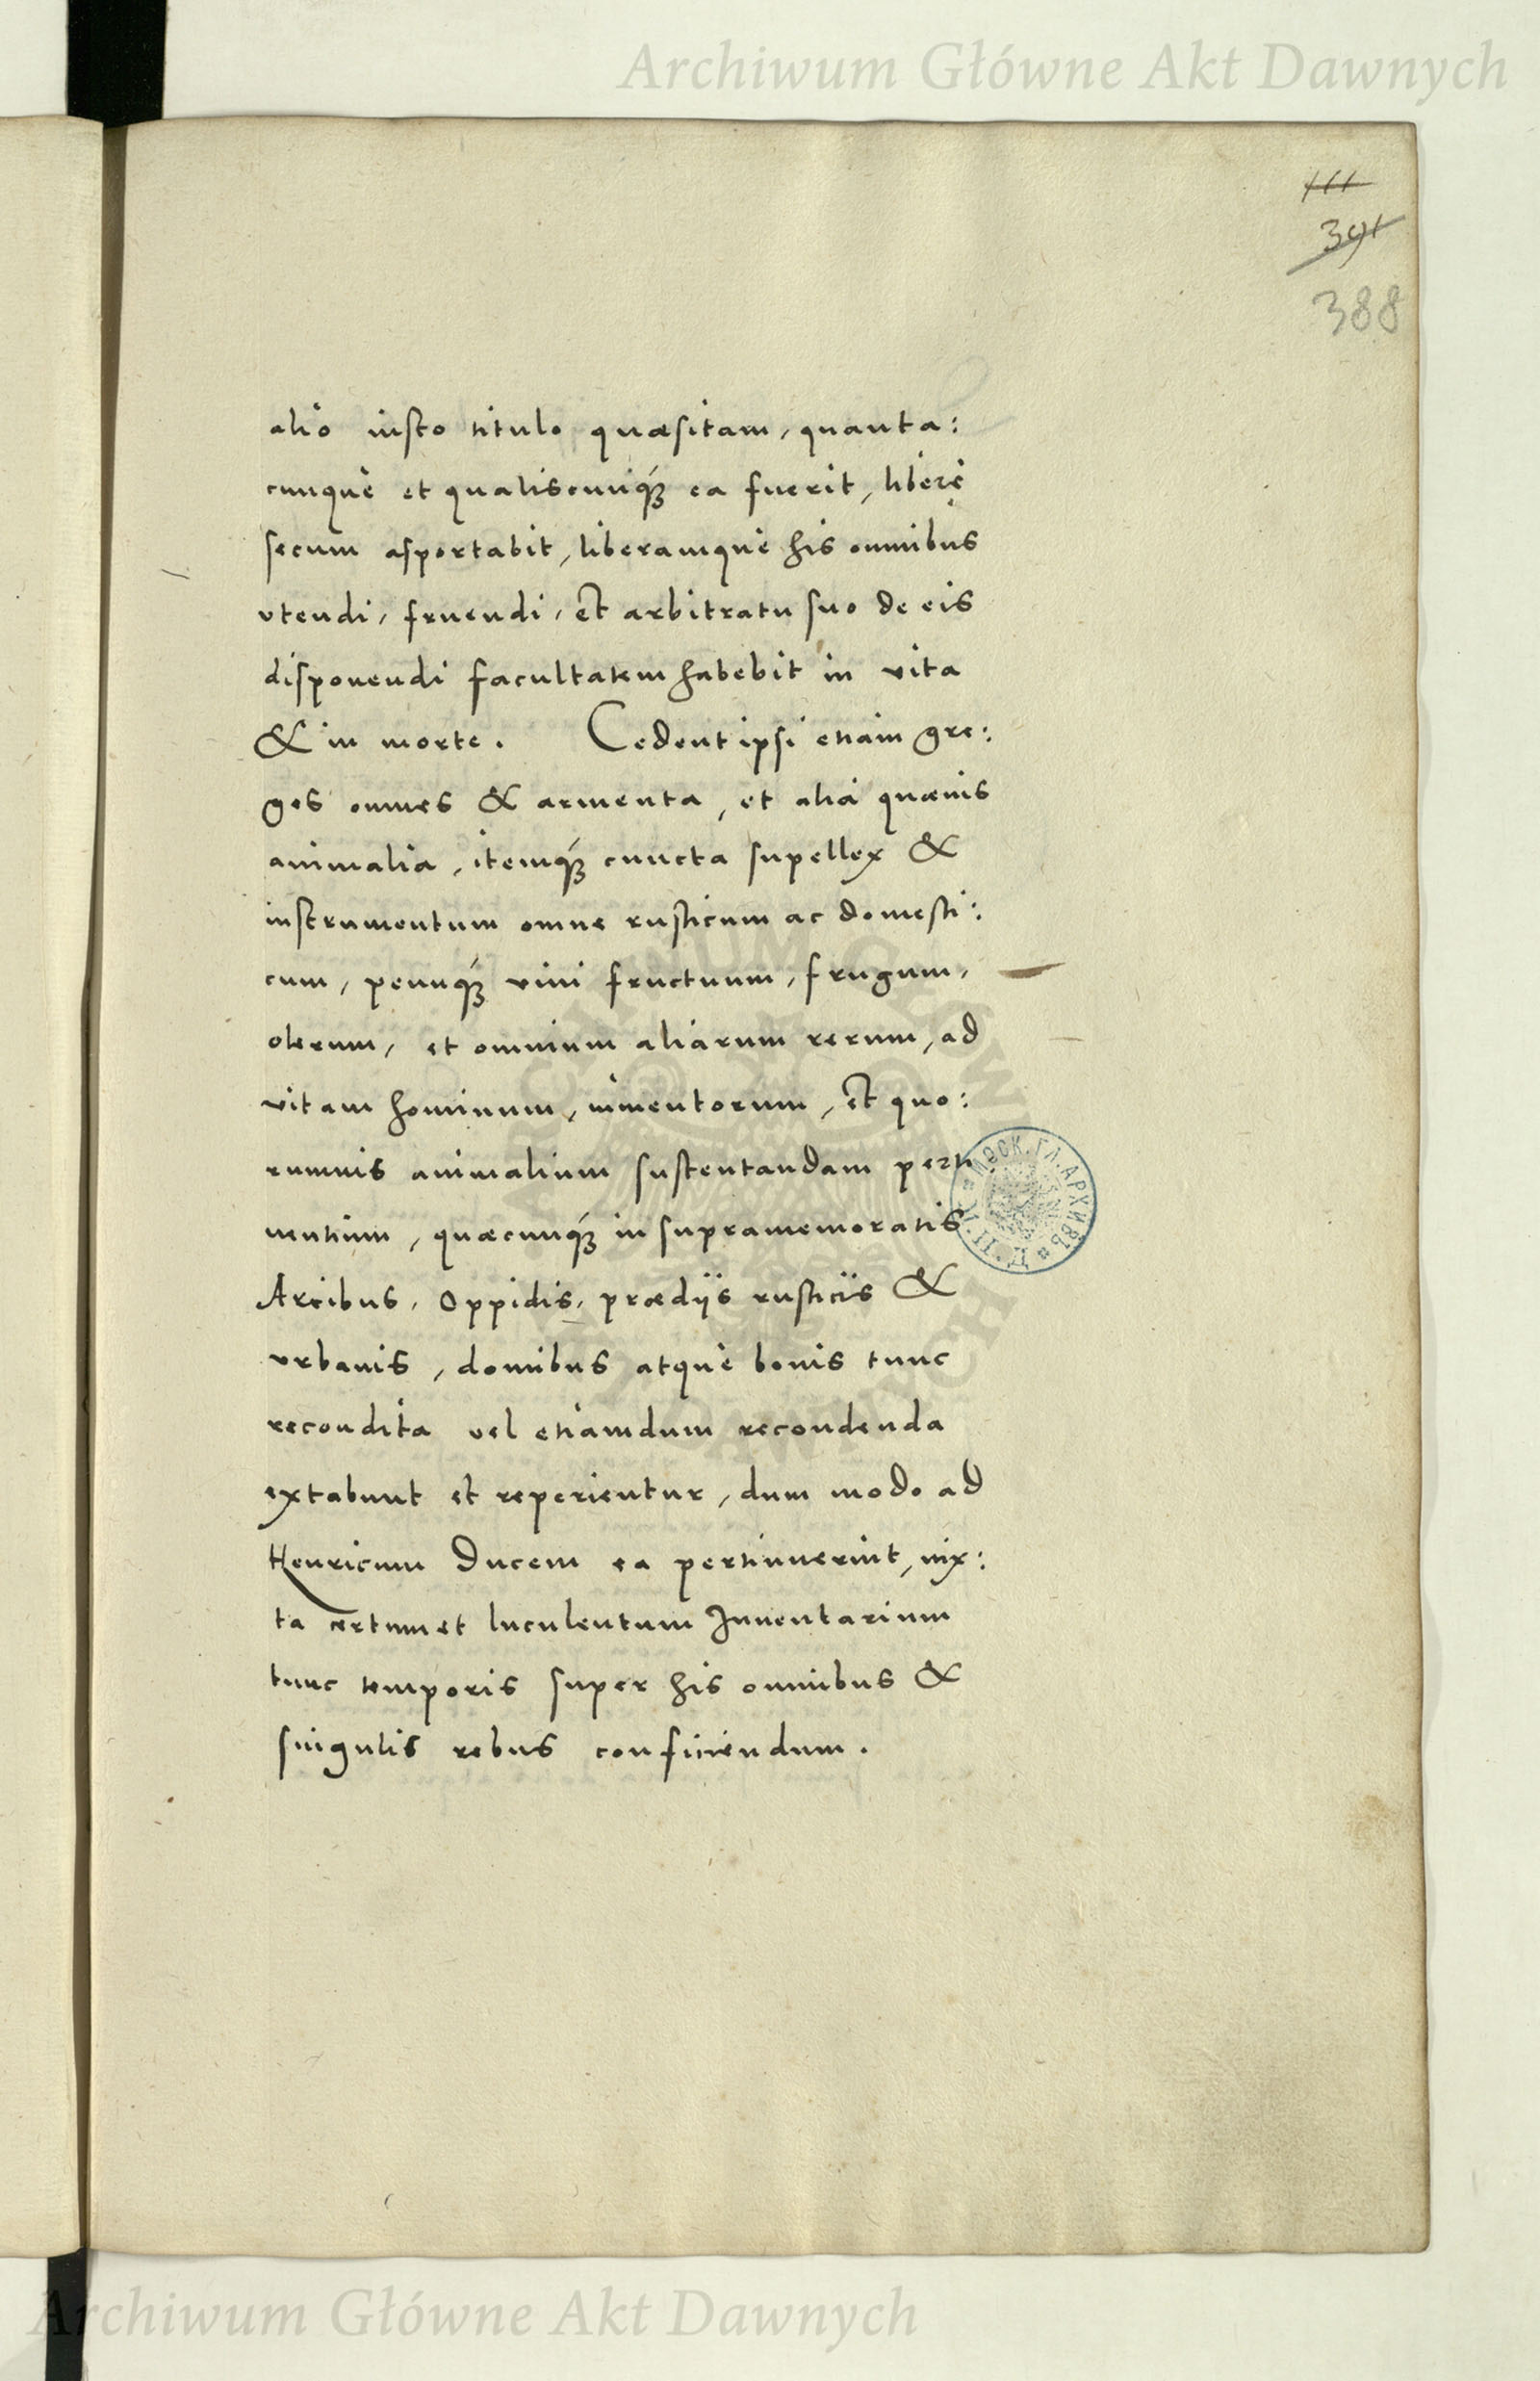 Archiwum Główne Akt Dawnych
111
391
388
alio iusto titulo quæsitam, quanta:
cunque et qualiscunq́ꝫ ea fuerit, liberè
secum asportabit, liberamque his omnibus
vtendi, fruendi, et arbitratu suo de eis
disponendi facultatem habebit in vita
& in morte. Cedent ipsi etiam gre:
ges omnes & armenta, et alia quæuis
animalia, itemq́ꝫ cuncta supellex &
instrumentum omne rusticum ac domesti:
cum, penuq́ꝫ vini fructuum, frugum,
olerum, et omnium aliarum rerum, ad
vitam hominum, iumentorum, et quo:
rumuis animalium sustentandam perti
nentium, quæcunq́ꝫ in supramemoratis
Arcibus, Oppidis, prædijs rusticis &
vrbanis, domibus atque bonis tunc
recondita vel etiamdum recondenda
extabunt et reperientur, dum modo ad
Henricum Ducem ea pertinuerint, iux:
ta certum et luculentum Inuentarium
tunc temporis super his omnibus &
singulis rebus conficiendum.
МОСК. ГЛ. АРХИВЪ
Archiwum Główne Akt Dawnych